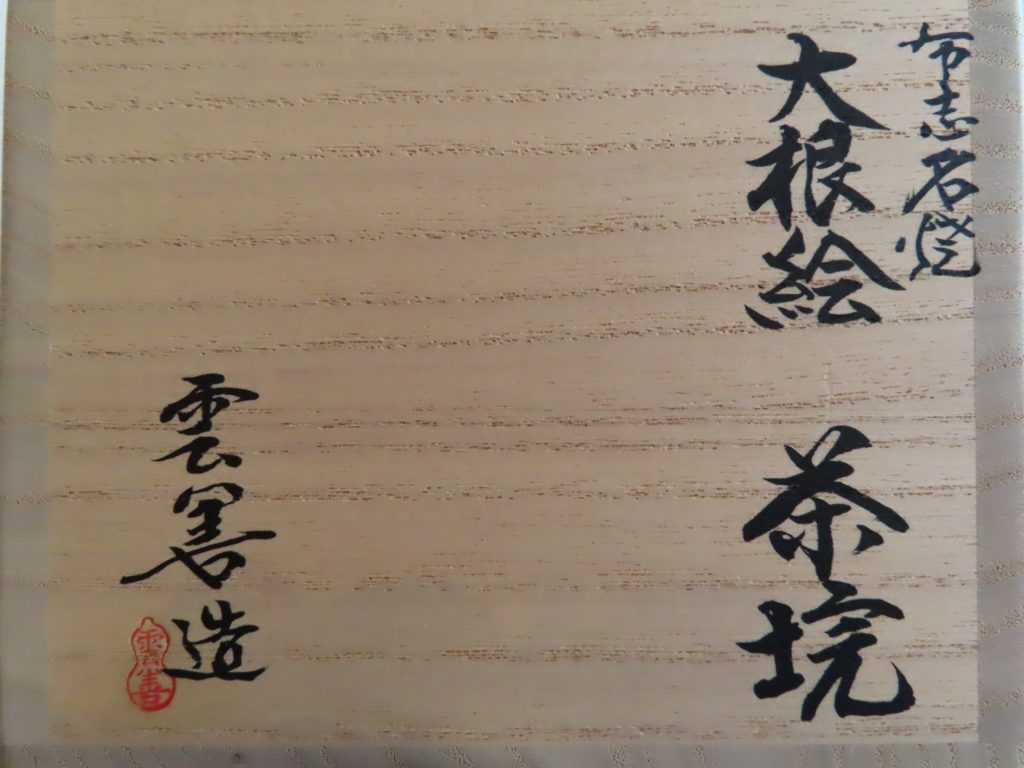 布志名焼
大根絵 茶垸
雲善造
雲善